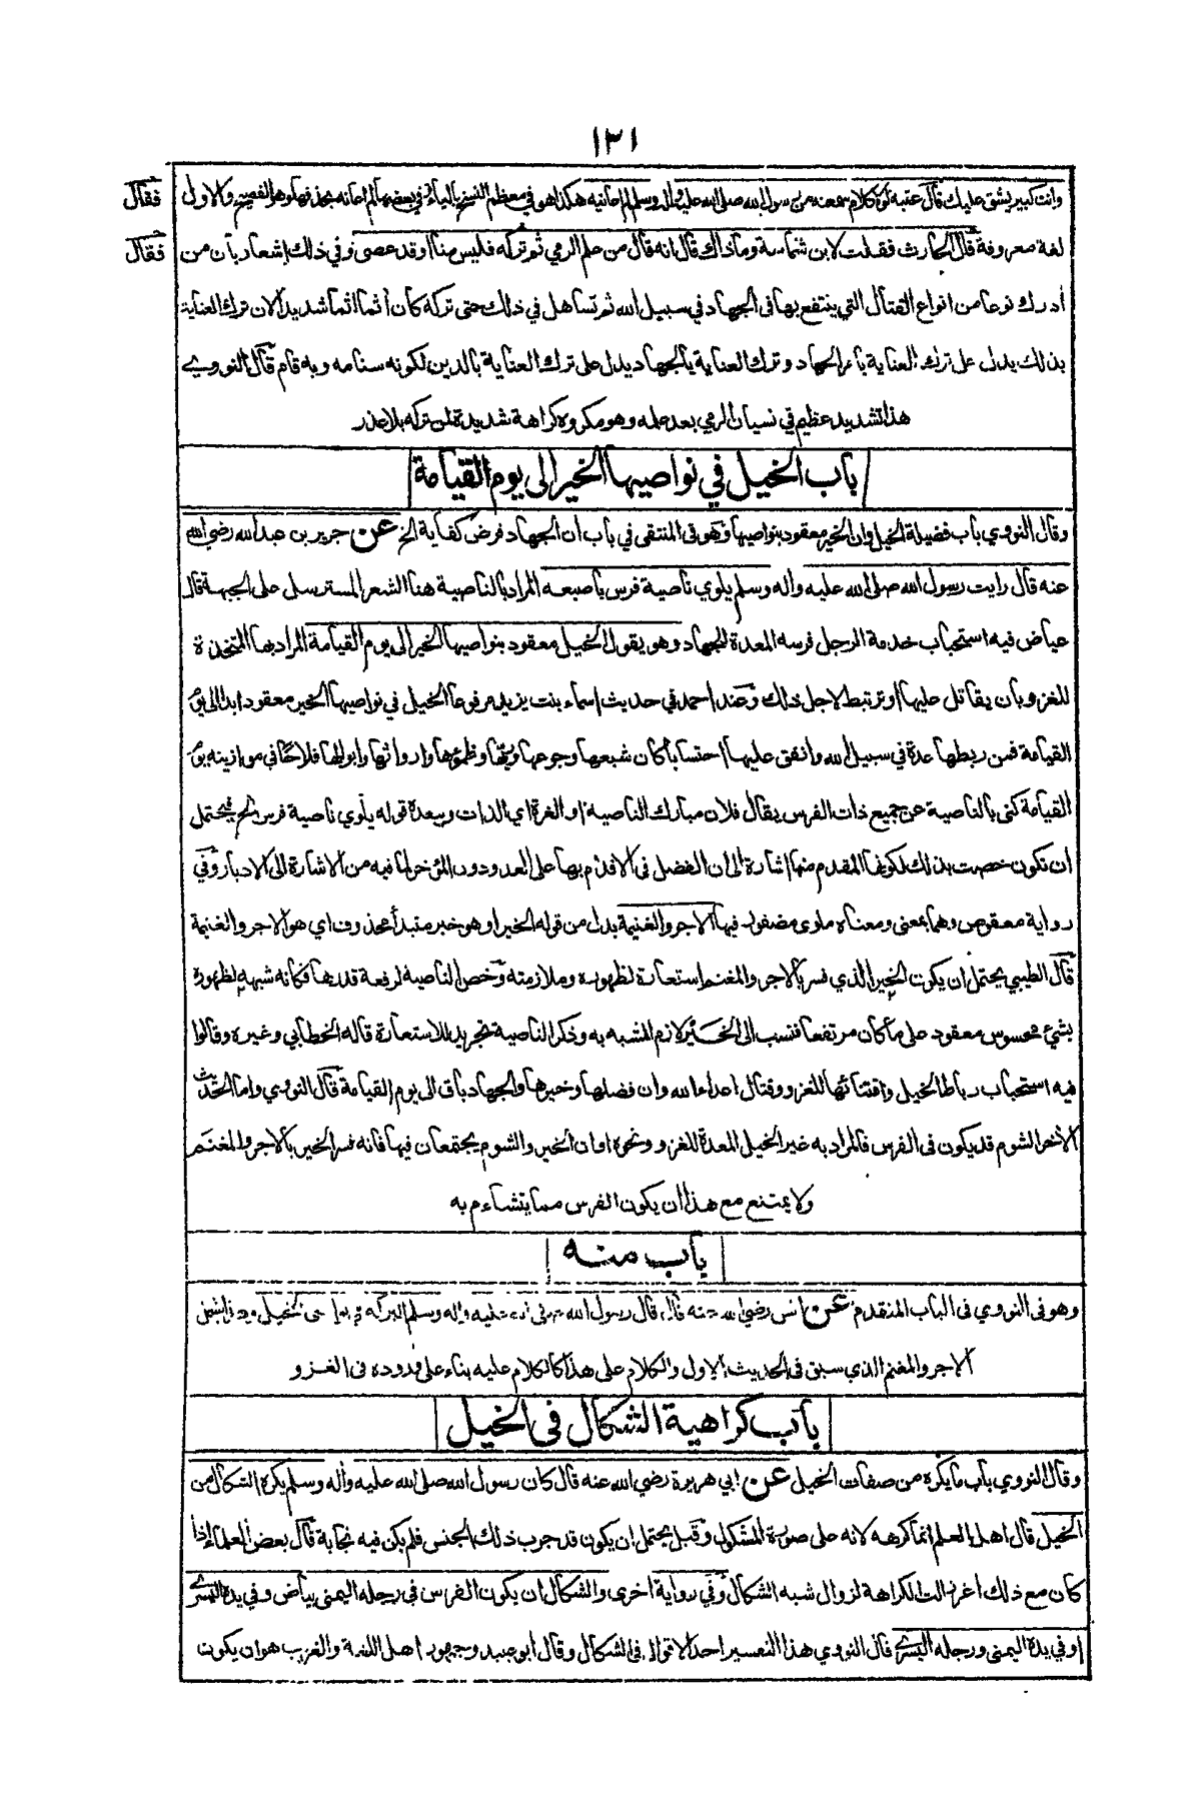 ١٣١
وانت كبير يشق عليك قال عقبة لولا كلام سمعته من رسول الله صلى الله عليه واله وسلم لم اعانيه هكذا هو في معظم النسخ بالياء وفي بعضها لم اعانه بحذفها وهو الفصيح والاول
فقال
لغة معروفة قال الحارث فقلت لابن شماسة وما ذاك قال انه قال من علم الرمي ثم تركه فليس منا او قد عصى وفي ذلك اشعار بأن من
فقال
أدرك نوعا من انواع القتال التي ينتفع بها في الجهاد في سبيل الله ثم تساهل في ذلك حتى تركه كان آثما اثما شديدا لان ترك العناية
بذلك يدل على ترك العناية بأمر الجهاد وترك العناية بالجهاد يدل على ترك العناية بالدين لكونه سنامه وبه قام قال النووي
هذا تشديد عظيم في نسيان الرمي بعد علمه وهو مكروه كراهة شديدة لمن تركه بلا عذر
باب الخيل في نواصيها الخير الى يوم القيامة
وقال النووي باب فضيلة الخيل وان الخير معقود بنواصيها وهو في المنتقى في باب ان الجهاد فرض كفاية الخ عن جرير بن عبد الله رضي الله
عنه قال رايت رسول الله صلى الله عليه واله وسلم يلوي ناصية فرس باصبعه المراد بالناصية هنا الشعر المسترسل على الجبهة قال
عياض فيه استحباب خدمة الرجل فرسه المعدة للجهاد وهو يقول الخيل معقود بنواصيها الخير الى يوم القيامة المراد بها المتخذة
للغزو بان يقاتل عليها او ترتبط لاجل ذلك وعند احمد في حديث اسماء بنت يزيد مرفوعا الخيل في نواصيها الخير معقود ابدا الى يوم
القيامة فمن ربطها عدة في سبيل الله وانفق عليها احتسابا كان شبعها وجوعها وريها وظمؤها وارواثها وابوالها فلاحا في موازينه يوم
القيامة كنى بالناصية عن جميع ذات الفرس يقال فلان مبارك الناصية او الغرة اي الذات ويبعده قوله يلوي ناصية فرس الخ فيحتمل
ان تكون خصت بذلك لكونها المقدم منها اشارة الى ان الفضل في الاقدام بها على العدو دون المؤخر لما فيه من الاشارة الى الادبار وفي
رواية معقوص وهما بمعنى ومعناه ملوى مضفور فيها الاجر والغنيمة بدل من قوله الخير او هو خبر مبتدأ محذوف اي هو الاجر والغنيمة
قال الطيبي يحتمل ان يكون الخير الذي فسر بالاجر والمغنم استعارة لظهوره وملازمته وخص الناصية لرفعة قدرها فكانه شبهه لظهوره
بشيء محسوس معقود على ما كان مرتفعا فنسب الى الخير لازم المشبه به وذكر الناصية تجريد للاستعارة قاله الخطابي وغيره وقالوا
فيه استحباب رباط الخيل واقتنائها للغزو وقتال اعداء الله وان فضلها وخيرها والجهاد باق الى يوم القيامة قال النووي واما الحديث
الآخر الشوم قد يكون في الفرس فالمراد به غير الخيل المعدة للغزو ونحوه او ان الخير والشوم يجتمعان فيها فانه فسر الخير بالاجر والمغنم
ولا يمتنع مع هذا ان يكون الفرس مما يتشاءم به
باب منه
وهو في النووي في الباب المتقدم عن انس رضي الله عنه قال قال رسول الله صلى الله عليه واله وسلم البركة في نواصي الخيل
الاجر والمغنم الذي سبق في الحديث الاول والكلام على هذا كالكلام عليه بناء على قدوده في الغزو
باب كراهية الشكال في الخيل
وقال النووي باب ما يكره من صفات الخيل عن ابي هريرة رضي الله عنه قال كان رسول الله صلى الله عليه وأله وسلم يكره الشكال من
الخيل قال اهل العلم انما كرهه لانه على صورة المشكول وقيل يحتمل ان يكون قد جرب ذلك الجنس فلم يكن فيه نجابة قال بعض العلماء اذا
كان مع ذلك اغر زالت الكراهة لزوال شبه الشكال وفي رواية اخرى والشكال ان يكون الفرس في رجله اليمنى بياض وفي يده اليسرى
او في يده اليمنى ورجله اليسرى قال النووي هذا التفسير احد الاقوال في الشكال وقال أبو عبيد وجمهور اهل اللغة والغريب هو ان يكون